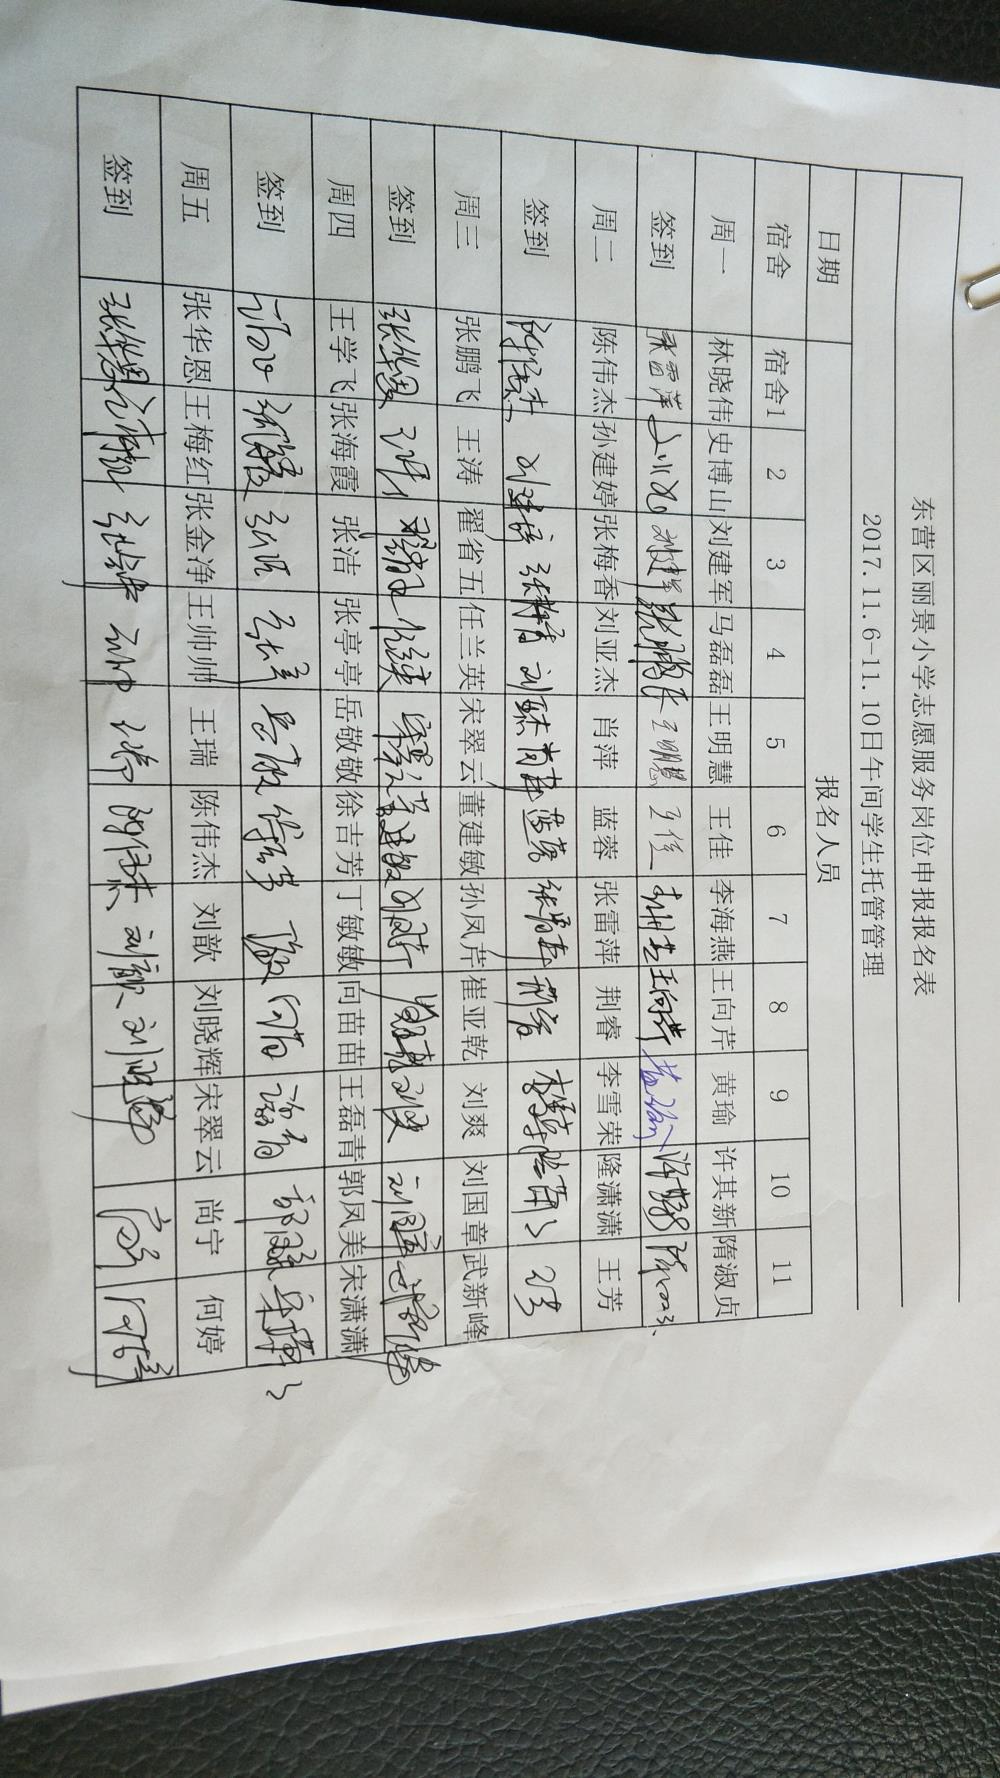 东营区丽景小学志愿服务岗位申报报名表
2017.11.6-11.10日午间学生托管管理
日期 报名人员
宿舍 宿舍1 2 3 4 5 6 7 8 9 10 11
周一 林晓伟 史博山 刘建军 马磊磊 王明慧 王佳 李海燕 王向芹 黄瑜 许其新 隋淑贞
签到 张雷萍 刘建军 张鹏飞 王明慧 王佳 王向芹 黄瑜
周二 陈伟杰 孙建婷 张梅香 刘亚杰 肖萍 蓝蓉 张雷萍 荆睿 李雪荣 隆潇潇 王芳
签到 陈伟杰 张梅香 肖萍 蓝蓉 张雷萍 荆睿 王芳
周三 张鹏飞 王涛 翟省五 任兰英 宋翠云 董建敏 孙凤芹 崔亚乾 刘爽 刘国章 武新峰
签到 张华恩 宋翠云 董建敏 刘爽 刘国章 武新峰
周四 王学飞 张海霞 张洁 张亭亭 岳敬敬 徐吉芳 丁敏敏 向苗苗 王磊青 郭凤美 宋潇潇
签到 张海霞 徐吉芳 向苗
周五 张华恩 王梅红 张金净 王帅帅 王瑞 陈伟杰 刘歆 刘晓辉 宋翠云 尚宁 何婷
签到 张华恩 张金净 王帅 王瑞 陈伟杰 刘歆 何婷